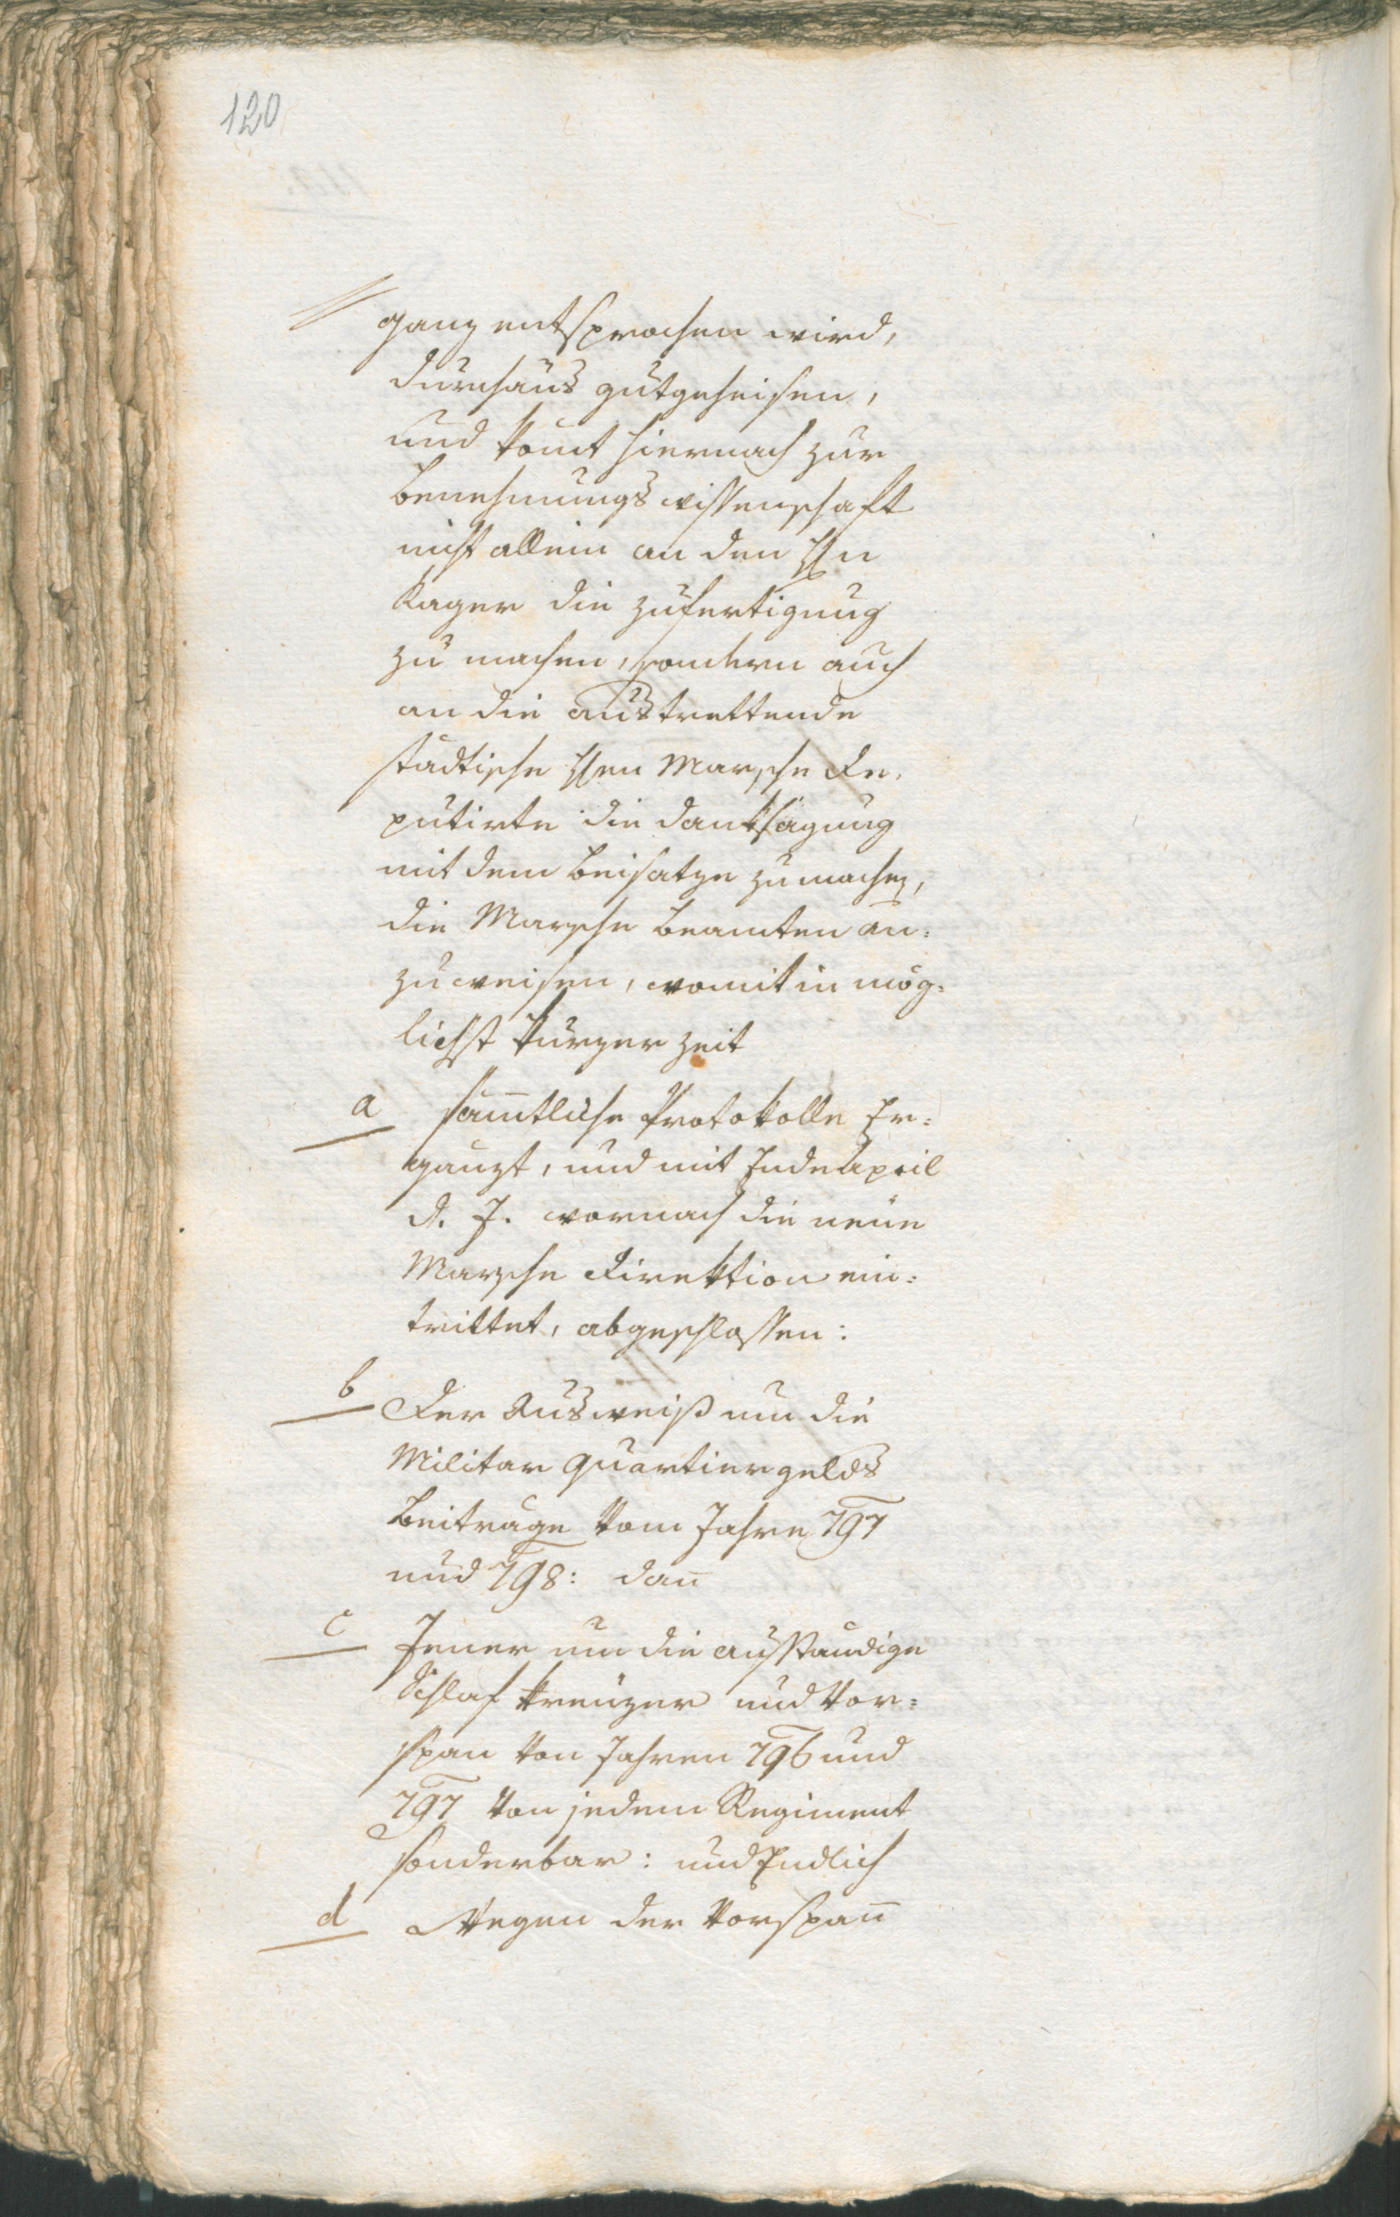 120
ganz entsprochen wird,
durchaus gutgeheisen,
und komt hiernach zur
Benehmungs wissenschaft
nicht allein an den Hn
Kager die zufertigung
zu machen, sondern auch
an die austrettende
städtische Hen Marsche De,
putirte die danksagung
mit dem beisatze zu machen,
die Marsche beamten an=
zu weisen, womit in mög=
lichst kurzer zeit
a sämtliche Protokolle Er=
ganzt, und mit Ende April
d. J. wornach die neüe
Marsche Direktion ein=
trittet, abgeschlossen:
b Der Ausweiß um die
Militar Quartiergelds
Beitrage vom Jahre 797
und 798: dan̄
c Jener um die ausständige
Schlaf kreüzer und Vor=
span von Jahren 796 und
797 von jedem Regiment
sonderbar: und Endlich
d Wegen der Vorspan̄